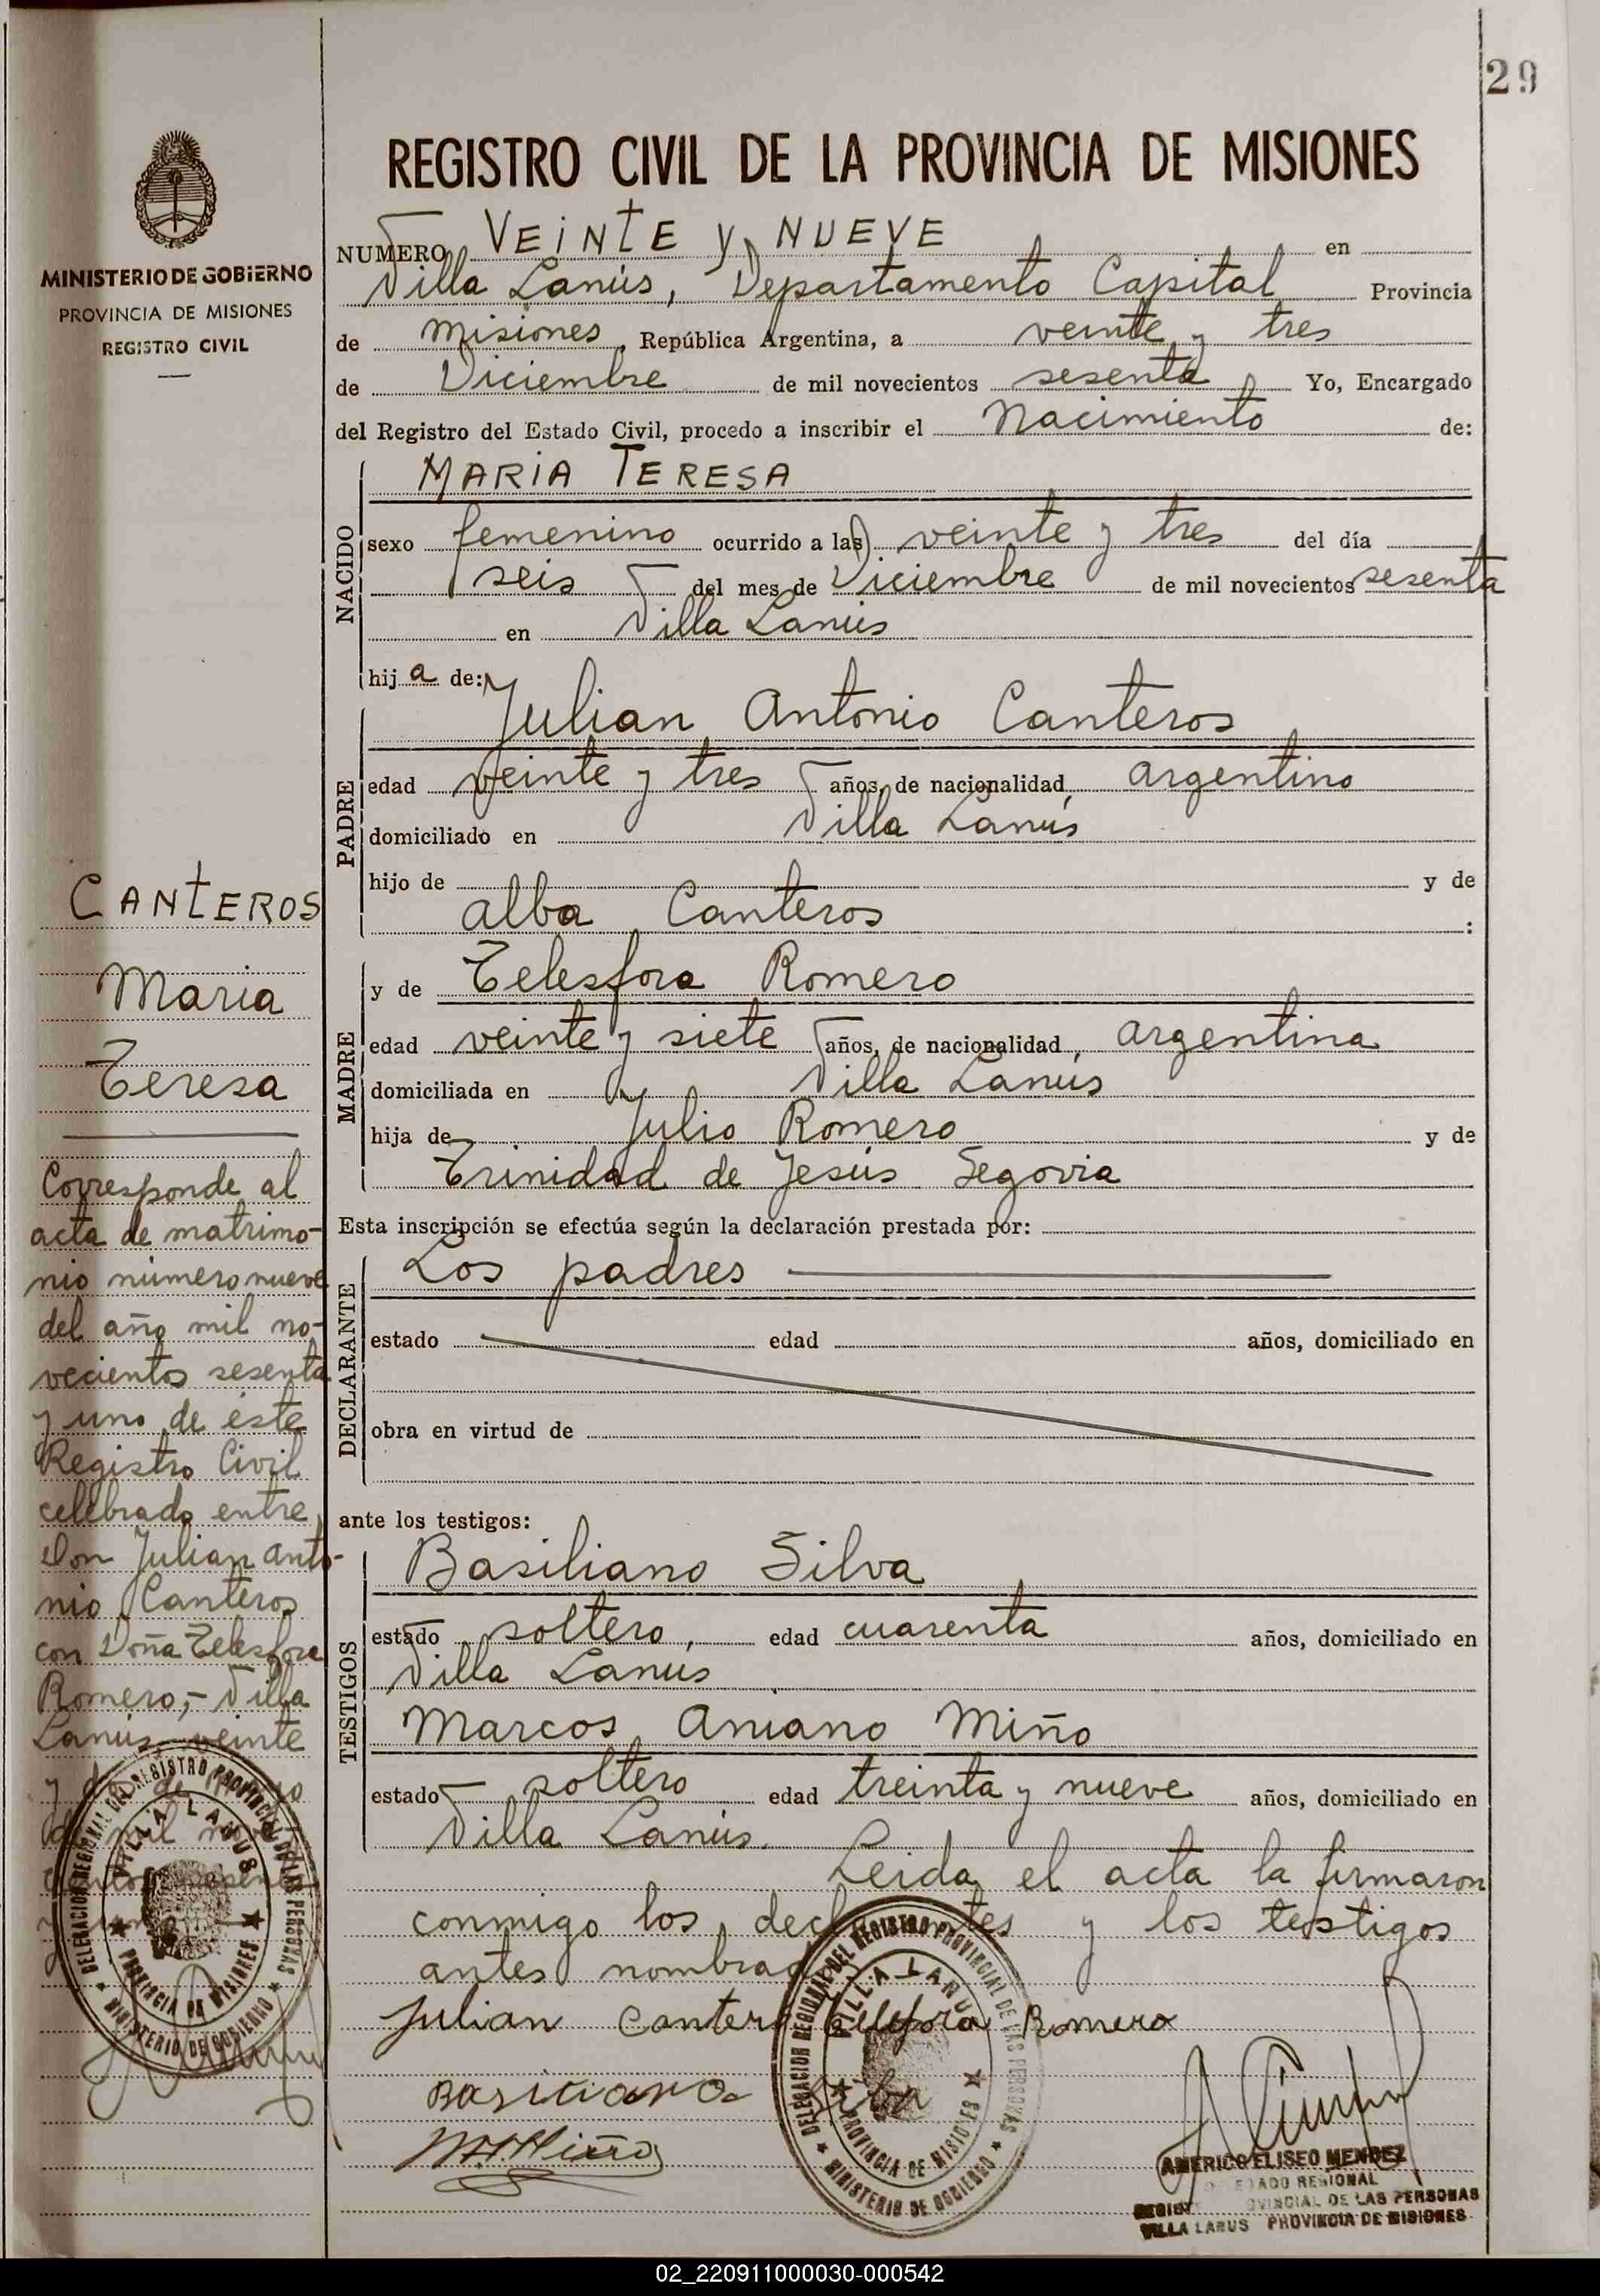 29
MINISTERIO DE GOBIERNO
PROVINCIA DE MISIONES
REGISTRO CIVIL
REGISTRO CIVIL DE LA PROVINCIA DE MISIONES
NUMERO VEINTE y NUEVE en
Villa Lanús, Departamento Capital Provincia
de Misiones, República Argentina, a veinte y tres
de Diciembre de mil novecientos sesenta Yo, Encargado
del Registro del Estado Civil, procedo a inscribir el Nacimiento de:
NACIDO
MARIA TERESA
sexo femenino ocurrido a las veinte y tres del día
seis del mes de Diciembre de mil novecientos sesenta
en Villa Lanús
hija de:
PADRE
Julian Antonio Canteros
edad veinte y tres años, de nacionalidad argentino
domiciliado en Villa Lanús
hijo de y de
Alba Canteros :
MADRE
y de Telesfora Romero
edad veinte y siete años, de nacionalidad, argentina
domiciliada en Villa Lanús
hija de Julio Romero y de
Trinidad de Jesús Segovia
Esta inscripción se efectúa según la declaración prestada por:
DECLARANTE
Los padres
estado edad años, domiciliado en
obra en virtud de
ante los testigos:
TESTIGOS
Basiliano Silva
estado soltero, edad cuarenta años, domiciliado en
Villa Lanús
Marcos Aniano Miño
estado soltero edad treinta y nueve años, domiciliado en
Villa Lanús. Leida el acta la firmaron
conmigo los declarantes y los testigos
antes nombrados
Julian Canteros Telesfora Romero
Basiliano Silba
M.A. Miño
DELEGACION REGIONAL DEL REGISTRO PROVINCIAL DE LAS PERSONAS
VILLA LANUS
PROVINCIA DE MISIONES
MINISTERIO DE GOBIERNO
AMERICO ELISEO MENDEZ
REGIONAL
PROVINCIAL DE LAS PERSONAS
VILLA LANUS PROVINCIA DE MISIONES
CANTEROS
Maria
Teresa
Corresponde al
acta de matrimo-
nio número nueve
del año mil no-
vecientos sesenta
y uno de éste
Registro Civil
celebrado entre
Don Julian Anto-
nio Canteros
con Doña Telesfora
Romero,- Villa
Lanús, veinte
y de
mil
DELEGACION REGIONAL DEL REGISTRO PROVINCIAL DE LAS PERSONAS
VILLA LANUS
PROVINCIA DE MISIONES
MINISTERIO DE GOBIERNO
02_220911000030-000542